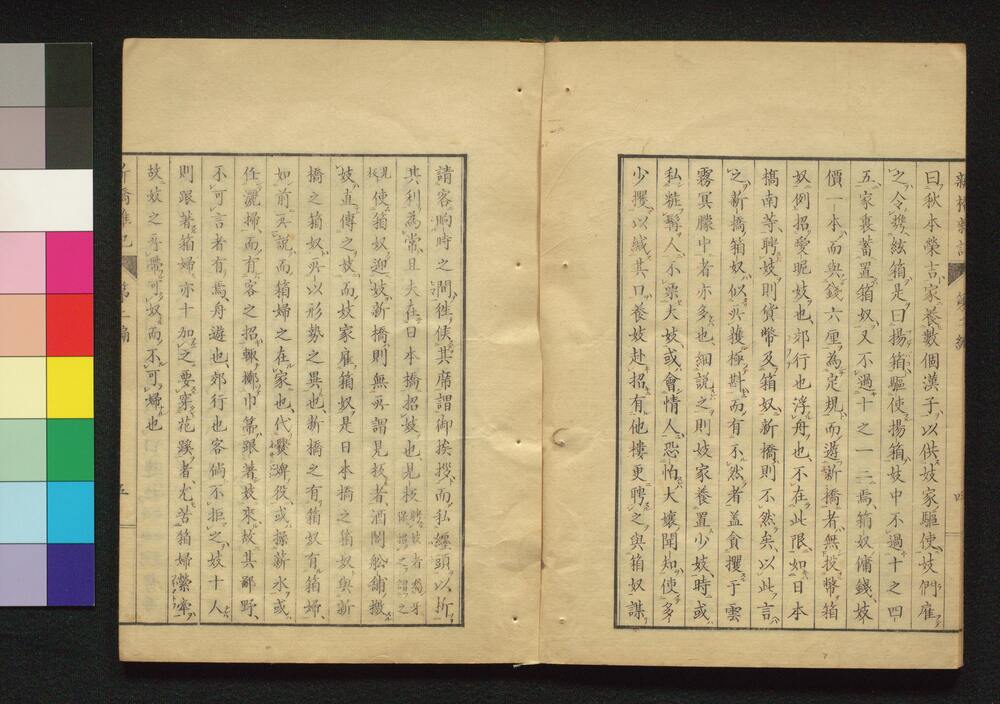 新橋雜記 第二編 四
曰、秋本榮吉家養數個漢子、以供妓家驅使、妓們雇
之令携絃箱、是曰揚箱、驅使揚箱、妓中不過十之四
五、家裏蓄置箱奴、又不過十之一二焉、箱奴傭錢、妓
價一本、而與錢六厘、為定規、而遊新橋者、無投幣箱
奴例、招愛昵妓也、郊行也、浮舟也、不在此限、如日本
橋南等、聘妓則貸幣及箱奴、新橋則不然矣、以此言
之、新橋箱奴、似所獲極尠、而有不然者、蓋貪攫于雲
霧冥朦中者亦多也、細說之、則妓家養置少妓、時或
私粧鬻人、不稟大妓或會情人、恐怕大孃聞知、使多
少攫、以緘其口、養妓赴招、有他樓更聘之、與箱奴謀
請客晌時之間、徃侯其席、謂御挨拶、而私纏頭、以折
其利為常、且夫在日本橋招妓也、見板
使箱奴迎妓、新橋則無所謂見板者、酒閣船舖、檄
妓、直傳之妓、而妓家雇箱奴、是日本橋之箱奴與新
橋之箱奴、所以形勢之異也、新橋之有箱奴有箱婦、
如前所說、而箱婦之在家也、代爨婢役、或操薪水、或
任灑掃、而有客之招、輙擲巾箒、跟著妓來、故其鄙野、
不可言者有焉、舟遊也、郊行也、客倘不拒之、妓十人
則跟著箱婦亦十、加之要穿花蹊者、尤苦箱婦縈牽、
故妓之 帶可奴而不可婦也
新橋雜記 第二編 五